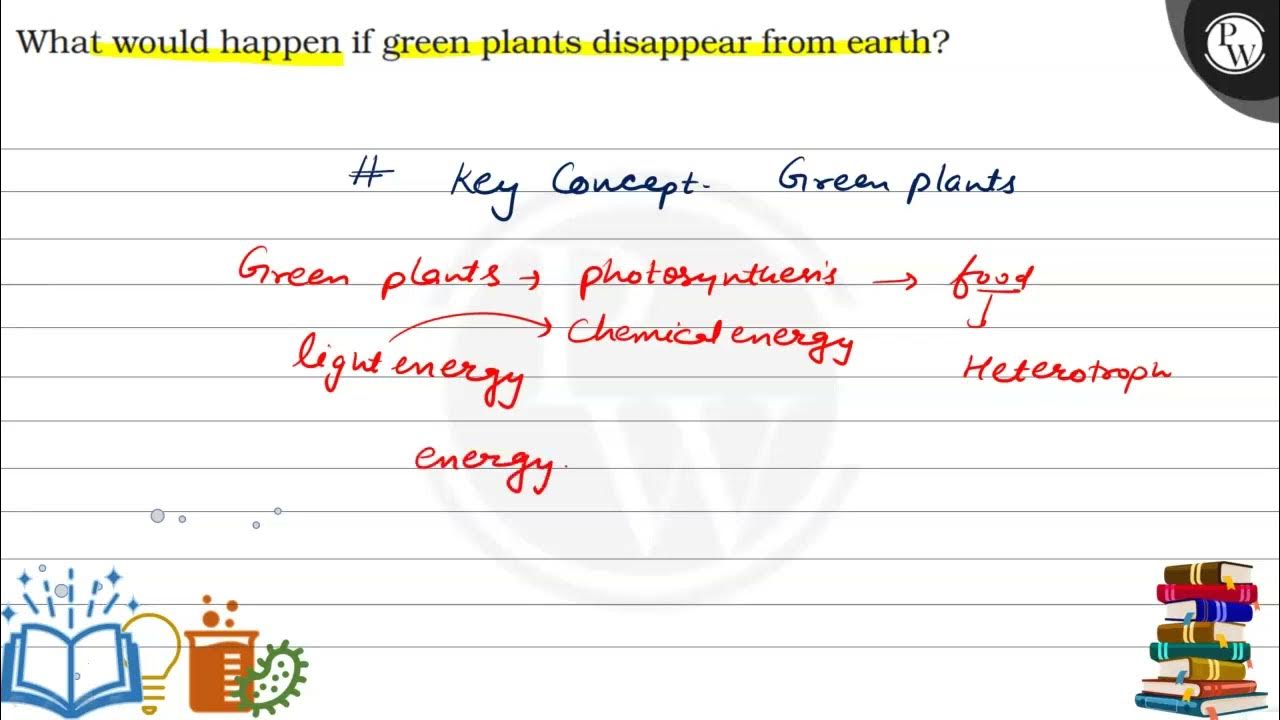 What would happen if green plants disappear from earth?
PW
# Key Concept. Green plants
Green plants → photosynthesis → food
light energy → Chemical energy
Heterotroph
energy.
PW